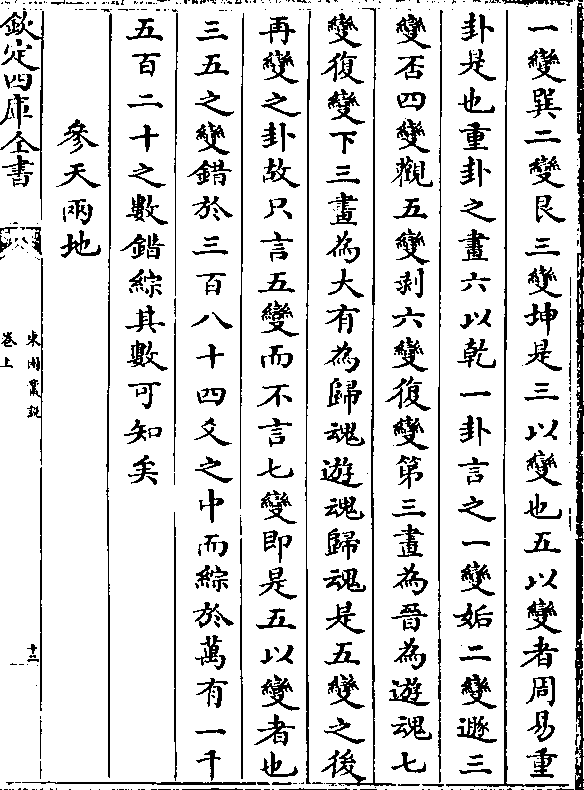 一變巽二變艮三變坤是三以變也五以變者周易重
卦是也重卦之畫六以乾一卦言之一變姤二變遯三
變否四變觀五變剥六變復變第三畫為晉為遊魂七
變復變下三畫為大有為歸魂遊魂歸魂是五變之後
再變之卦故只言五變而不言七變即是五以變者也
三五之變錯於三百八十四爻之中而綜於萬有一千
五百二十之數錯綜其數可知矣
參天兩地
欽定四庫全書
卷上
十二